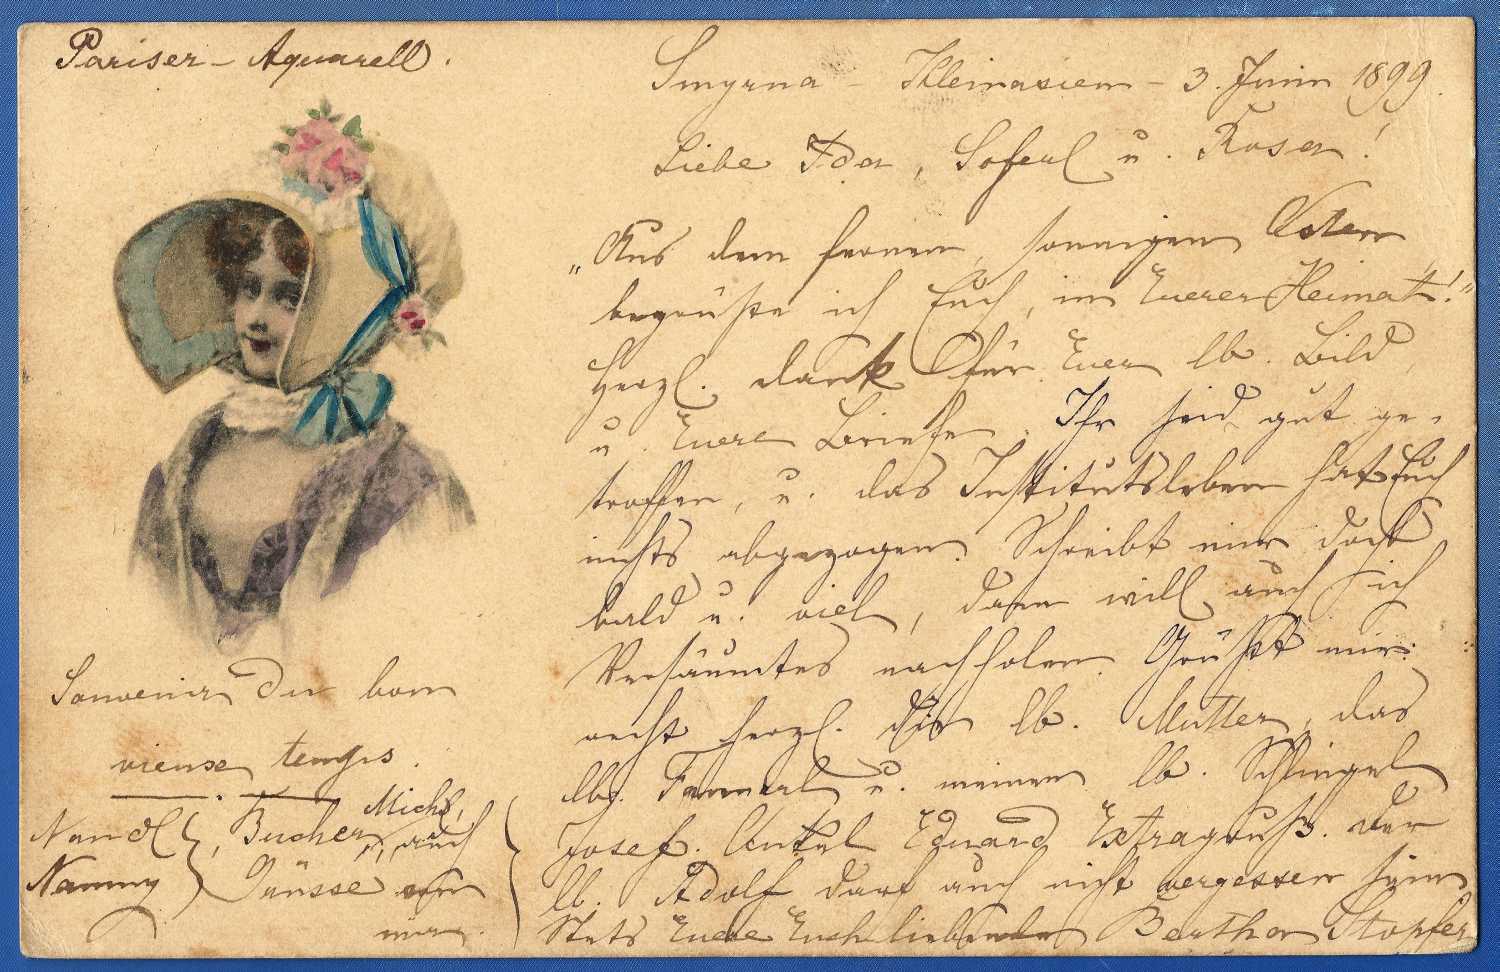 Pariser – Aquarell.
Smyrna – Kleinasien – 3. Juni 1899.
Liebe Ida, Soferl u. Rosa!
„Aus dem fernen, sonnigen Osten
begrüße ich Euch, in Eurer Heimat!"
Herzl. dank für Euer lb. Bild
u. Eure Briefe. Ihr seid gut ge-
troffen, u. das Institutsleben hat Euch
nichts abgezogen. Schreibt mir doch
bald u. viel, dann will auch ich
Versäumtes nachholen. Grüßt mir
recht herzl. die lb. Mutter, das
lbe. Fannerl u. meinen lb. Schlingel
Josef. Onkel Eduard Extragruß. Der
lb. Adolf darf auch nicht vergessen sein
Stets Eure Euch liebende Bertha Stopfer
Souvenir du bon
vieuse temps.
Nandl
Nanny
, Bucher Michl,
auch
Grüsse von
mir.